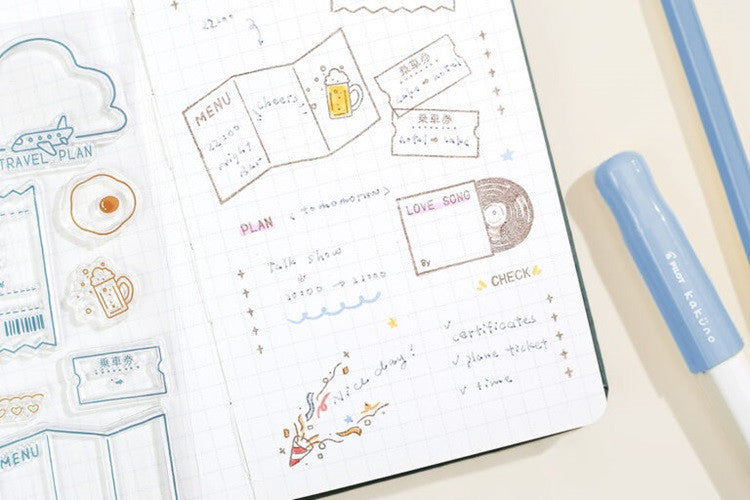 TRAVEL PLAN
乗車券
MENU
22:00
MENU
22:00
night
cheers
乗車券
乗車券
hotel → cafe
PLAN
(tomorrow)
Talk show
20:00 → 22:00
LOVE SONG
By
CHECK
✓ certificates
✓ plane ticket
✓ time
Nice day!
PILOT kakuno